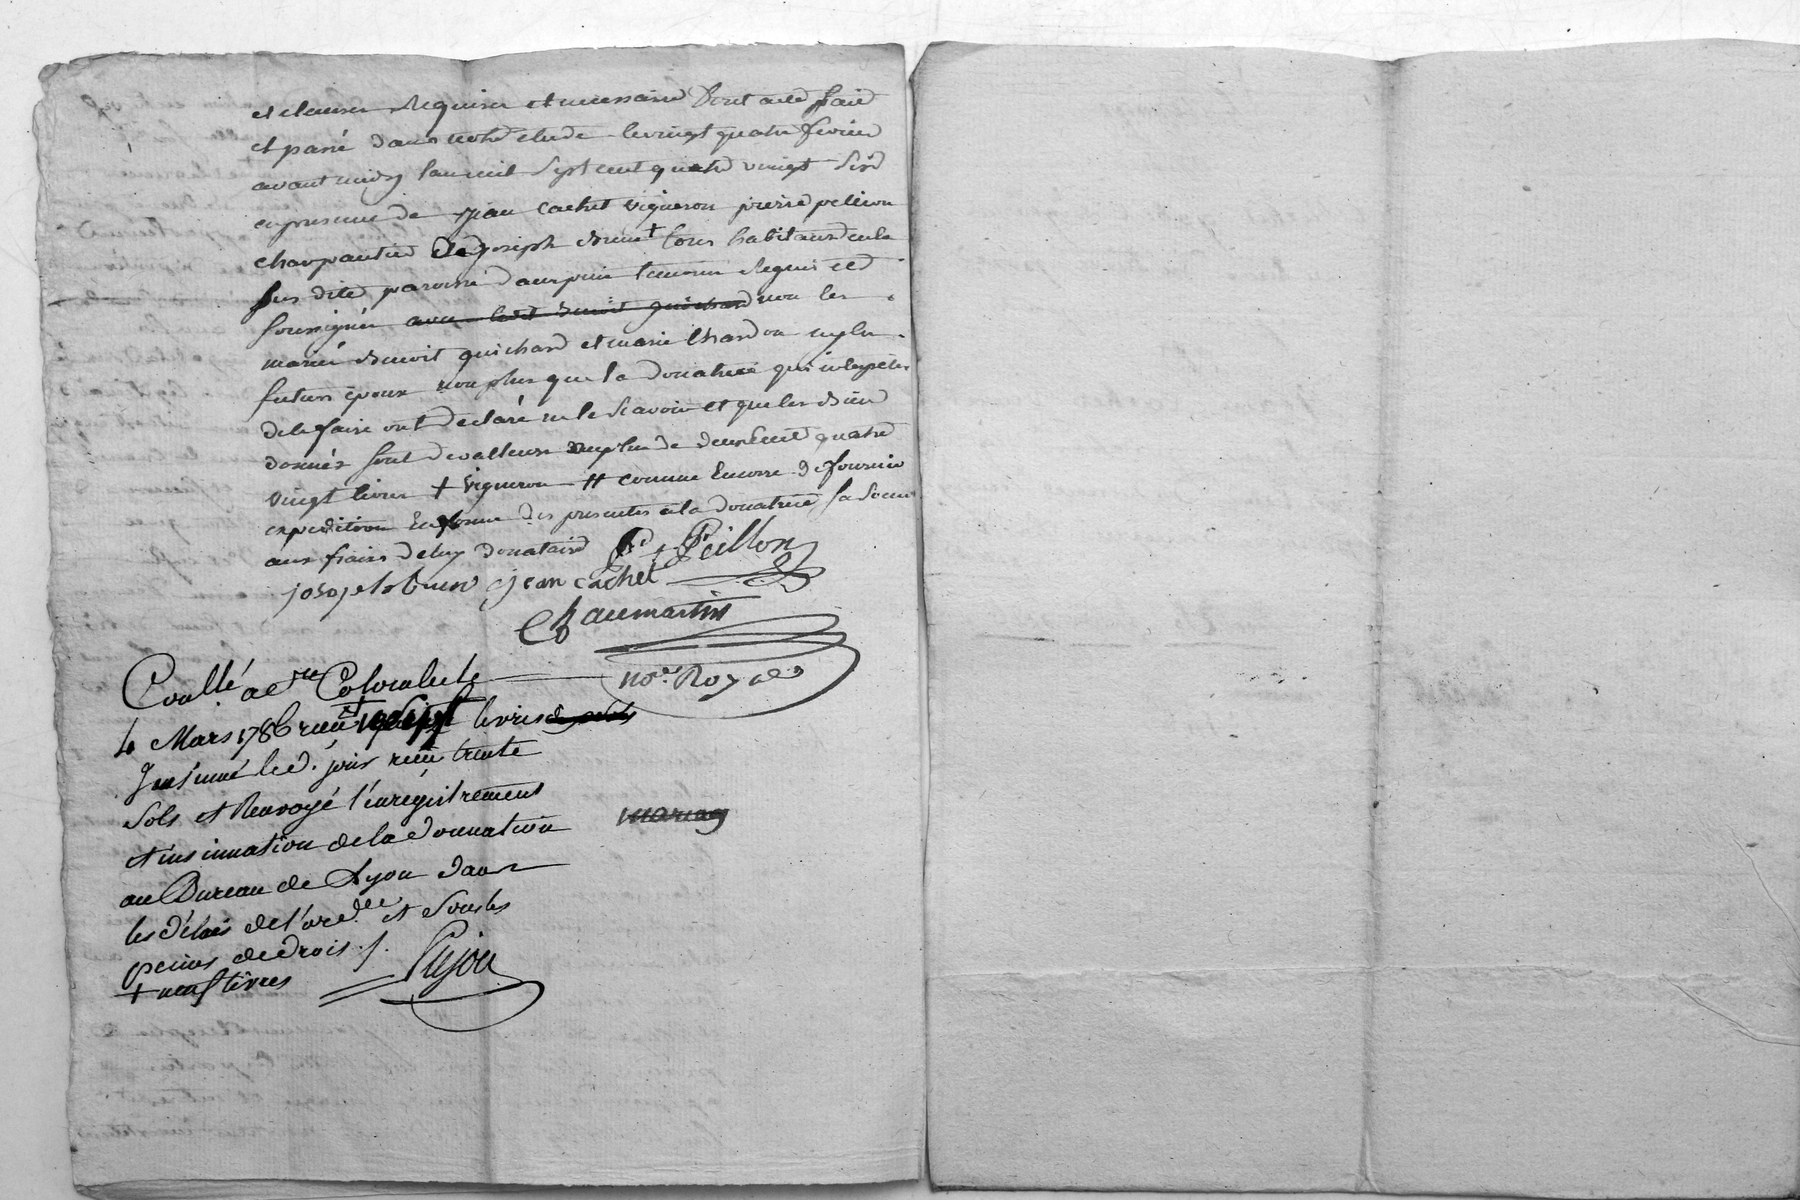 et clauses requises et necessaires Dont acte fait
et passé dans notre etude le vingt quatre fevrier
avant midy l'an mil sept cent quatre vingt six
en presence de jean cachet vigneron pierre peillon
charpentier et joseph brunet tous habitans en la
sus dite paroisse temoins requis et
soussignés avec ledit benoit guichard non les
mariés benoit guichard et marie chardon ny les
futurs epoux non plus que la donatrice qui interpellés
de le faire ont declaré ne le scavoir et que les biens
donnés sont de valleur au plus de deux cent quatre
vingt livres + vigneron # comme encore de fournir
expedition en forme des presentes a la donatrice sa soeur
aux frais de luy donataire Pre Peillon
joseph brunet jean cachet
Chaumartin
nore. Royal
Conllé a Ste Colombe le
4 Mars 1786 livres
Insinué led. jour reçu trente
sols et Renvoyé l'enregistrement
et insinuation de la donnation
au Bureau de Lyon dans
les délais de l'ordce et sous les
peines de droit ./.
+ neuf livres Pujon